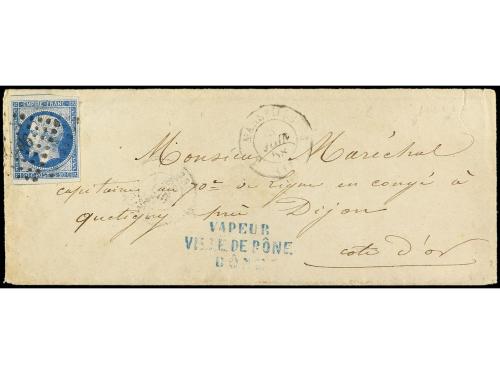 EMPIRE FRANC
JUIN
58
Monsieur Maréchal
capitaine au 70e de ligne en congé à
quetigny près Dijon
VAPEUR
VILLE DE BÔNE
BÔNE
cote d'or